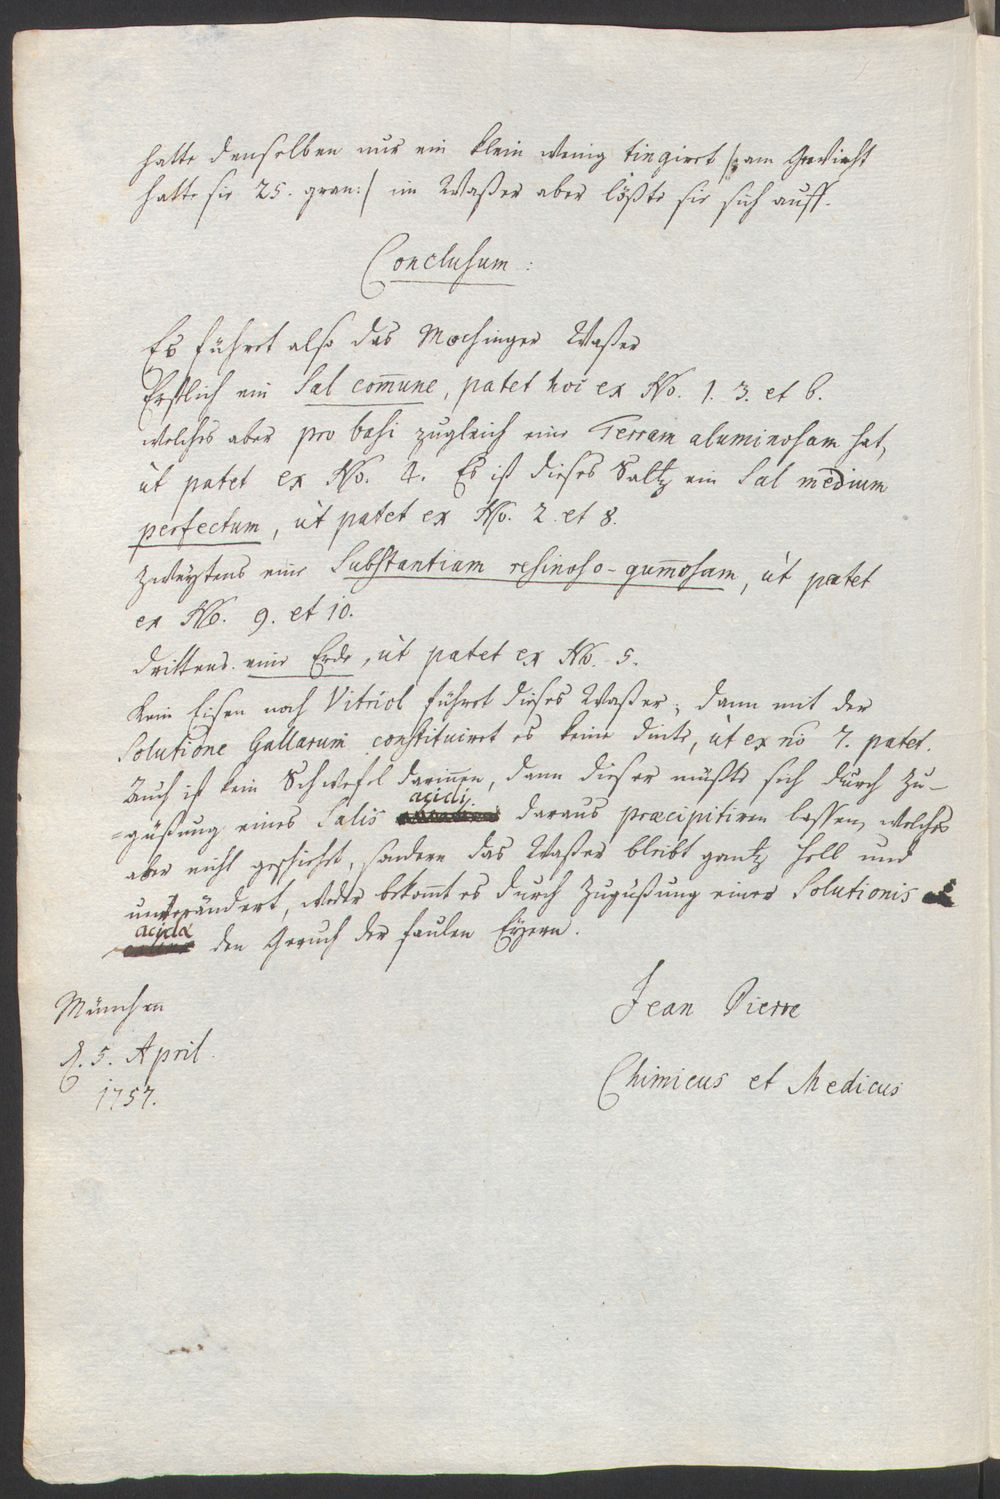 hatte denselben nur ein klein wenig tingirt /: am Gewicht
hatte sie 25. gran :/ im Waßer aber lößte sie sich auff.
Conclusum:
Es führet also das Mochinger Waßer
Erstlich ein Sal com̄une, patet hoc ex No. 1. 3. et 6.
welches aber pro basi zugleich eine Terram aluminosam hat,
ut patet ex No. 4. Es ist dieses Saltz ein Sal medium
perfectum, ut patet ex No. 2. et 8.
Zweytens eine Substantiam resinoso-gum̄osam, ut patet
ex No. 9. et 10.
Drittens eine Erde, ut patet ex No. 5.
Kein Eisen noch Vitriol führet dieses Waßer, dann mit der
Solutione Gallarum constituiret es keine Dinte, ut ex no 7. patet.
Auch ist kein Schwefel darin̄en, dann dieser müßte sich durch Zu-
=güßung eines Salis acidi daraus præcipitiren lassen, welches
aber nicht geschiehet, sondern das Waßer bleibt gantz hell und
unverändert, weder bekom̄t es durch Zugüßung einer Solutionis
acidæ den Geruch der faulen Eyern.
München
d. 5. April.
1757.
Jean Pierre
Chimicus et Medicus